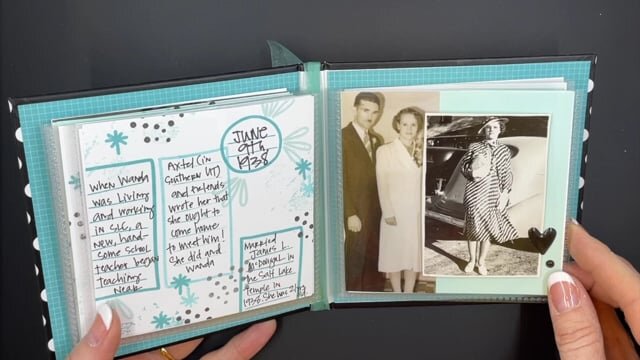 When Wanda
was living
and working
in SLC, a
new, hand-
some school
teacher began
teaching
near
Axtel (in
Southern UT)
and friends
wrote her that
she ought to
come home
to meet him!
She did and
Wanda
JUNE
9TH
1938
Married
James L.
McDougal in
the Salt Lake
Temple in
1938. She was